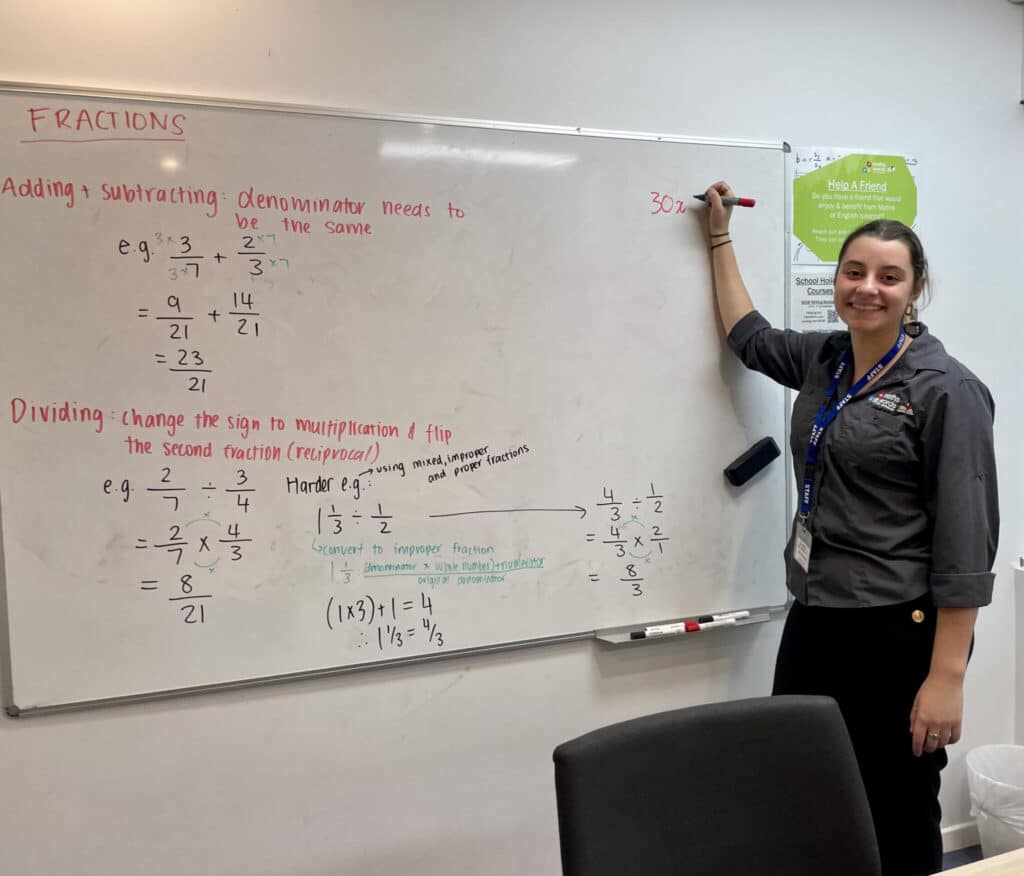 FRACTIONS
Adding + subtracting: denominator needs to
be the same
e.g. 3x 3/3x 7 + 2 x7/3 x7
= 9/21 + 14/21
= 23/21
Dividing: change the sign to multiplication & flip
the second fraction (reciprocal)
e.g. 2/7 ÷ 3/4
= 2/7 x 4/3
= 8/21
Harder e.g.: → using mixed, improper
and proper fractions
1 1/3 ÷ 1/2
convert to improper fraction
1 1/3 (denominator x whole number) + numerator
original denominator
(1x3)+1 = 4
∴ 1 1/3 = 4/3
4/3 ÷ 1/2
= 4/3 x 2/1
= 8/3
30x
Help A Friend
Do you have a friend that would
enjoy & benefit from Maths
or English tutoring?
School
Courses
STAFF
STAFF
STAFF
STAFF
maths
words